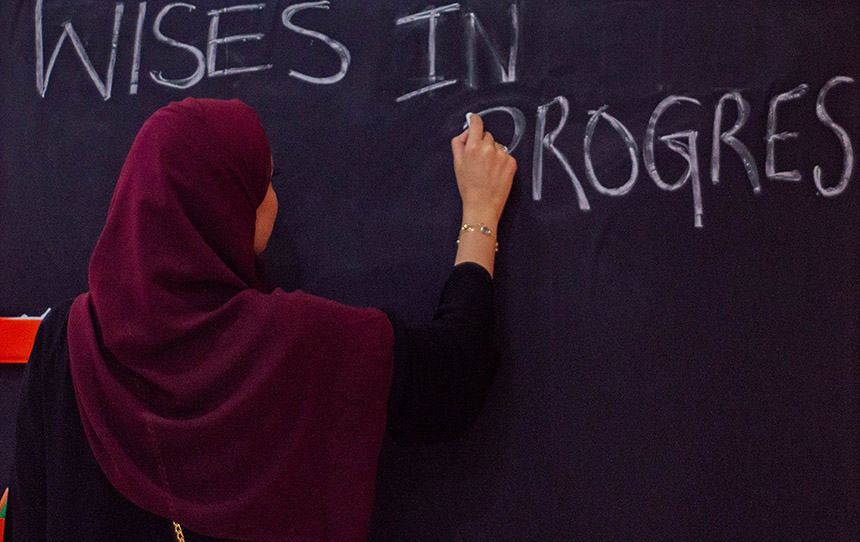 WISES IN
PROGRES